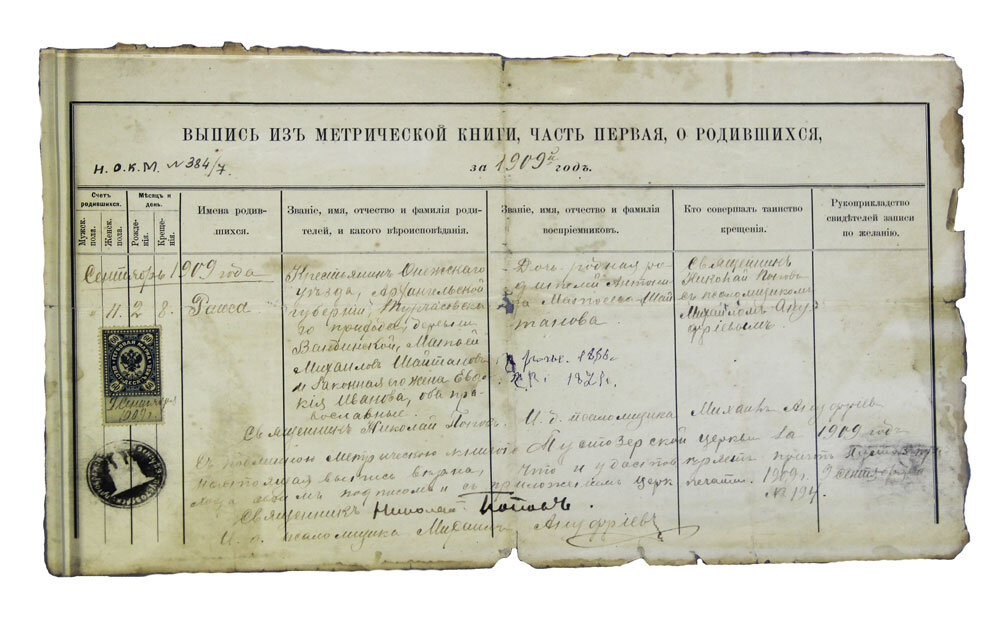 ВЫПИСЬ ИЗЪ МЕТРИЧЕСКОЙ КНИГИ, ЧАСТЬ ПЕРВАЯ, О РОДИВШИХСЯ,
Н.О.К.М. № 384/7.
за 1909й годъ.
Счетъ родившихся.
Мужск. пола.
Женск. пола.
Мѣсяцъ и день.
Рожде-нія.
Креще-нія.
Имена родив-
шихся.
Званіе, имя, отчество и фамилія роди-
телей, и какого вѣроисповѣданія.
Званіе, имя, отчество и фамилія
воспріемниковъ.
Кто совершалъ таинство
крещенія.
Рукоприкладство
свидѣтелей записи
по желанію.
Сентябрь 1909 года
" 11. 2 8.
Раиса
Крестьянинъ Онежскаго
уѣзда, Архангельской
губерніи,
прихода, деревни
Матѳей
Михаиловъ Шайтановъ
и законная его жена Евдо-
кія Иванова, оба пра-
вославные.
Дочь родная ро-
дителей Антони-
на Матѳеева Шай-
танова.
1878.
Священникъ
Николай Поповъ
съ псаломщикомъ
Михаиломъ Ану-
фріевымъ.
ГЕРБОВАЯ МАРКА
60 60
9 Сентября
1909 г.
Священникъ Николай Поповъ. И. д. псаломщика Михаилъ Ануфріевъ
Съ подлинною метрическою книгою Пустозерской церкви за 1909 годъ
настоящая выпись вѣрна, что и удостовѣряетъ причтъ
своимъ подписомъ и съ приложеніемъ церк. печати. 1909 г. 9 Сентября
№ 194.
Священникъ Николай Поповъ.
И. д. псаломщика Михаилъ Ануфріевъ